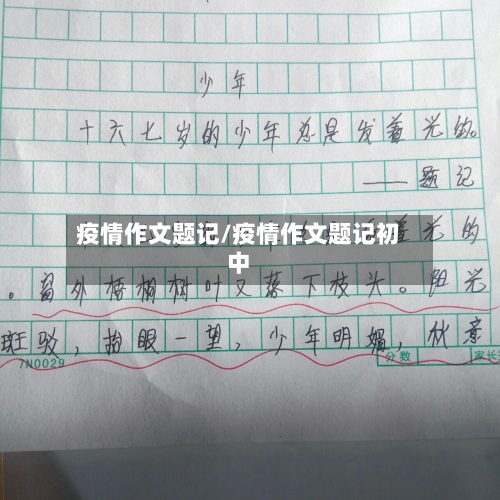 少年
十六七岁的少年总是发着光的。
——题记
疫情作文题记/疫情作文题记初
中
着光的
。窗外梧桐树叶又落下枝头。阳光
斑驳，抬眼一望，少年明媚，秋意
7N0029
分数
家长